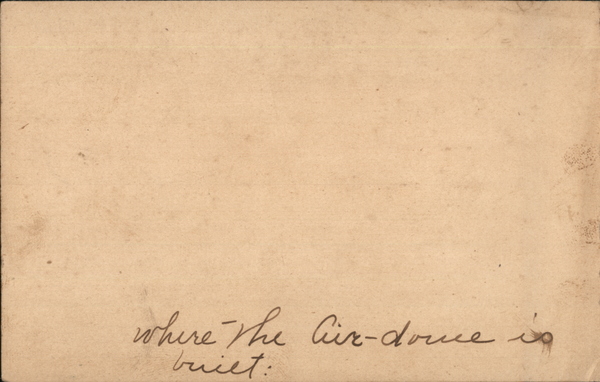 where the Air-dome is
built: